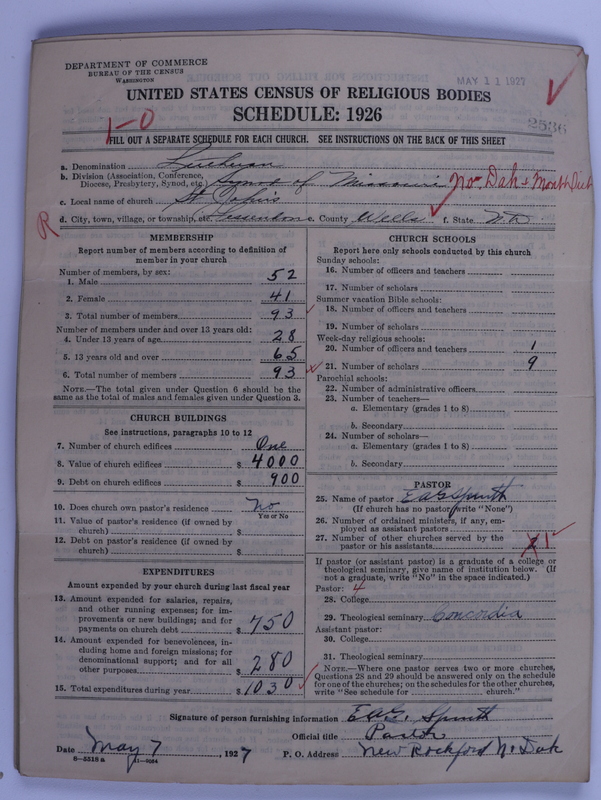 DEPARTMENT OF COMMERCE
BUREAU OF THE CENSUS
WASHINGTON
MAY 11 1927
UNITED STATES CENSUS OF RELIGIOUS BODIES
SCHEDULE: 1926
1-0
2536
FILL OUT A SEPARATE SCHEDULE FOR EACH CHURCH. SEE INSTRUCTIONS ON THE BACK OF THIS SHEET
a. Denomination Lutheran
b. Division (Association, Conference, Diocese, Presbytery, Synod, etc.) Synod of Missouri No Dak & Mont Dist
c. Local name of church St
R
d. City, town, village, or township, etc. Fessenden e. County Wells f. State N. D.
MEMBERSHIP
Report number of members according to definition of
member in your church
Number of members, by sex:
1. Male 52
2. Female 41
3. Total number of members 93
Number of members under and over 13 years old:
4. Under 13 years of age 28
5. 13 years old and over 65
6. Total number of members 93
NOTE.—The total given under Question 6 should be the
same as the total of males and females given under Question 3.
CHURCH BUILDINGS
See instructions, paragraphs 10 to 12
7. Number of church edifices One
8. Value of church edifices $ 4000
9. Debt on church edifices $ 900
10. Does church own pastor's residence No
Yes or No
11. Value of pastor's residence (if owned by
church) $
12. Debt on pastor's residence (if owned by
church) $
EXPENDITURES
Amount expended by your church during last fiscal year
13. Amount expended for salaries, repairs,
and other running expenses; for im-
provements or new buildings; and for
payments on church debt $ 750
14. Amount expended for benevolences, in-
cluding home and foreign missions; for
denominational support; and for all
other purposes $ 280
15. Total expenditures during year $ 1030
CHURCH SCHOOLS
Report here only schools conducted by this church
Sunday schools:
16. Number of officers and teachers
17. Number of scholars
Summer vacation Bible schools:
18. Number of officers and teachers
19. Number of scholars
Week-day religious schools:
20. Number of officers and teachers 1
21. Number of scholars 9
Parochial schools:
22. Number of administrative officers
23. Number of teachers—
a. Elementary (grades 1 to 8)
b. Secondary
24. Number of scholars—
a. Elementary (grades 1 to 8)
b. Secondary
PASTOR
25. Name of pastor
(If church has no pastor write "None")
26. Number of ordained ministers, if any, em-
ployed as assistant pastors
27. Number of other churches served by the
pastor or his assistants
If pastor (or assistant pastor) is a graduate of a college or
theological seminary, give name of institution below. (If
not a graduate, write "No" in the space indicated.)
Pastor: 4
28. College
29. Theological seminary Concordia
Assistant pastor:
30. College
31. Theological seminary
NOTE.—Where one pastor serves two or more churches,
Questions 28 and 29 should be answered only on the schedule
for one of the churches; on the schedules for the other churches,
write "See schedule for church."
Signature of person furnishing information
Official title Pastor
Date May 7, 1927 P. O. Address New Rockford N. Dak
6—5518 a 11—9084